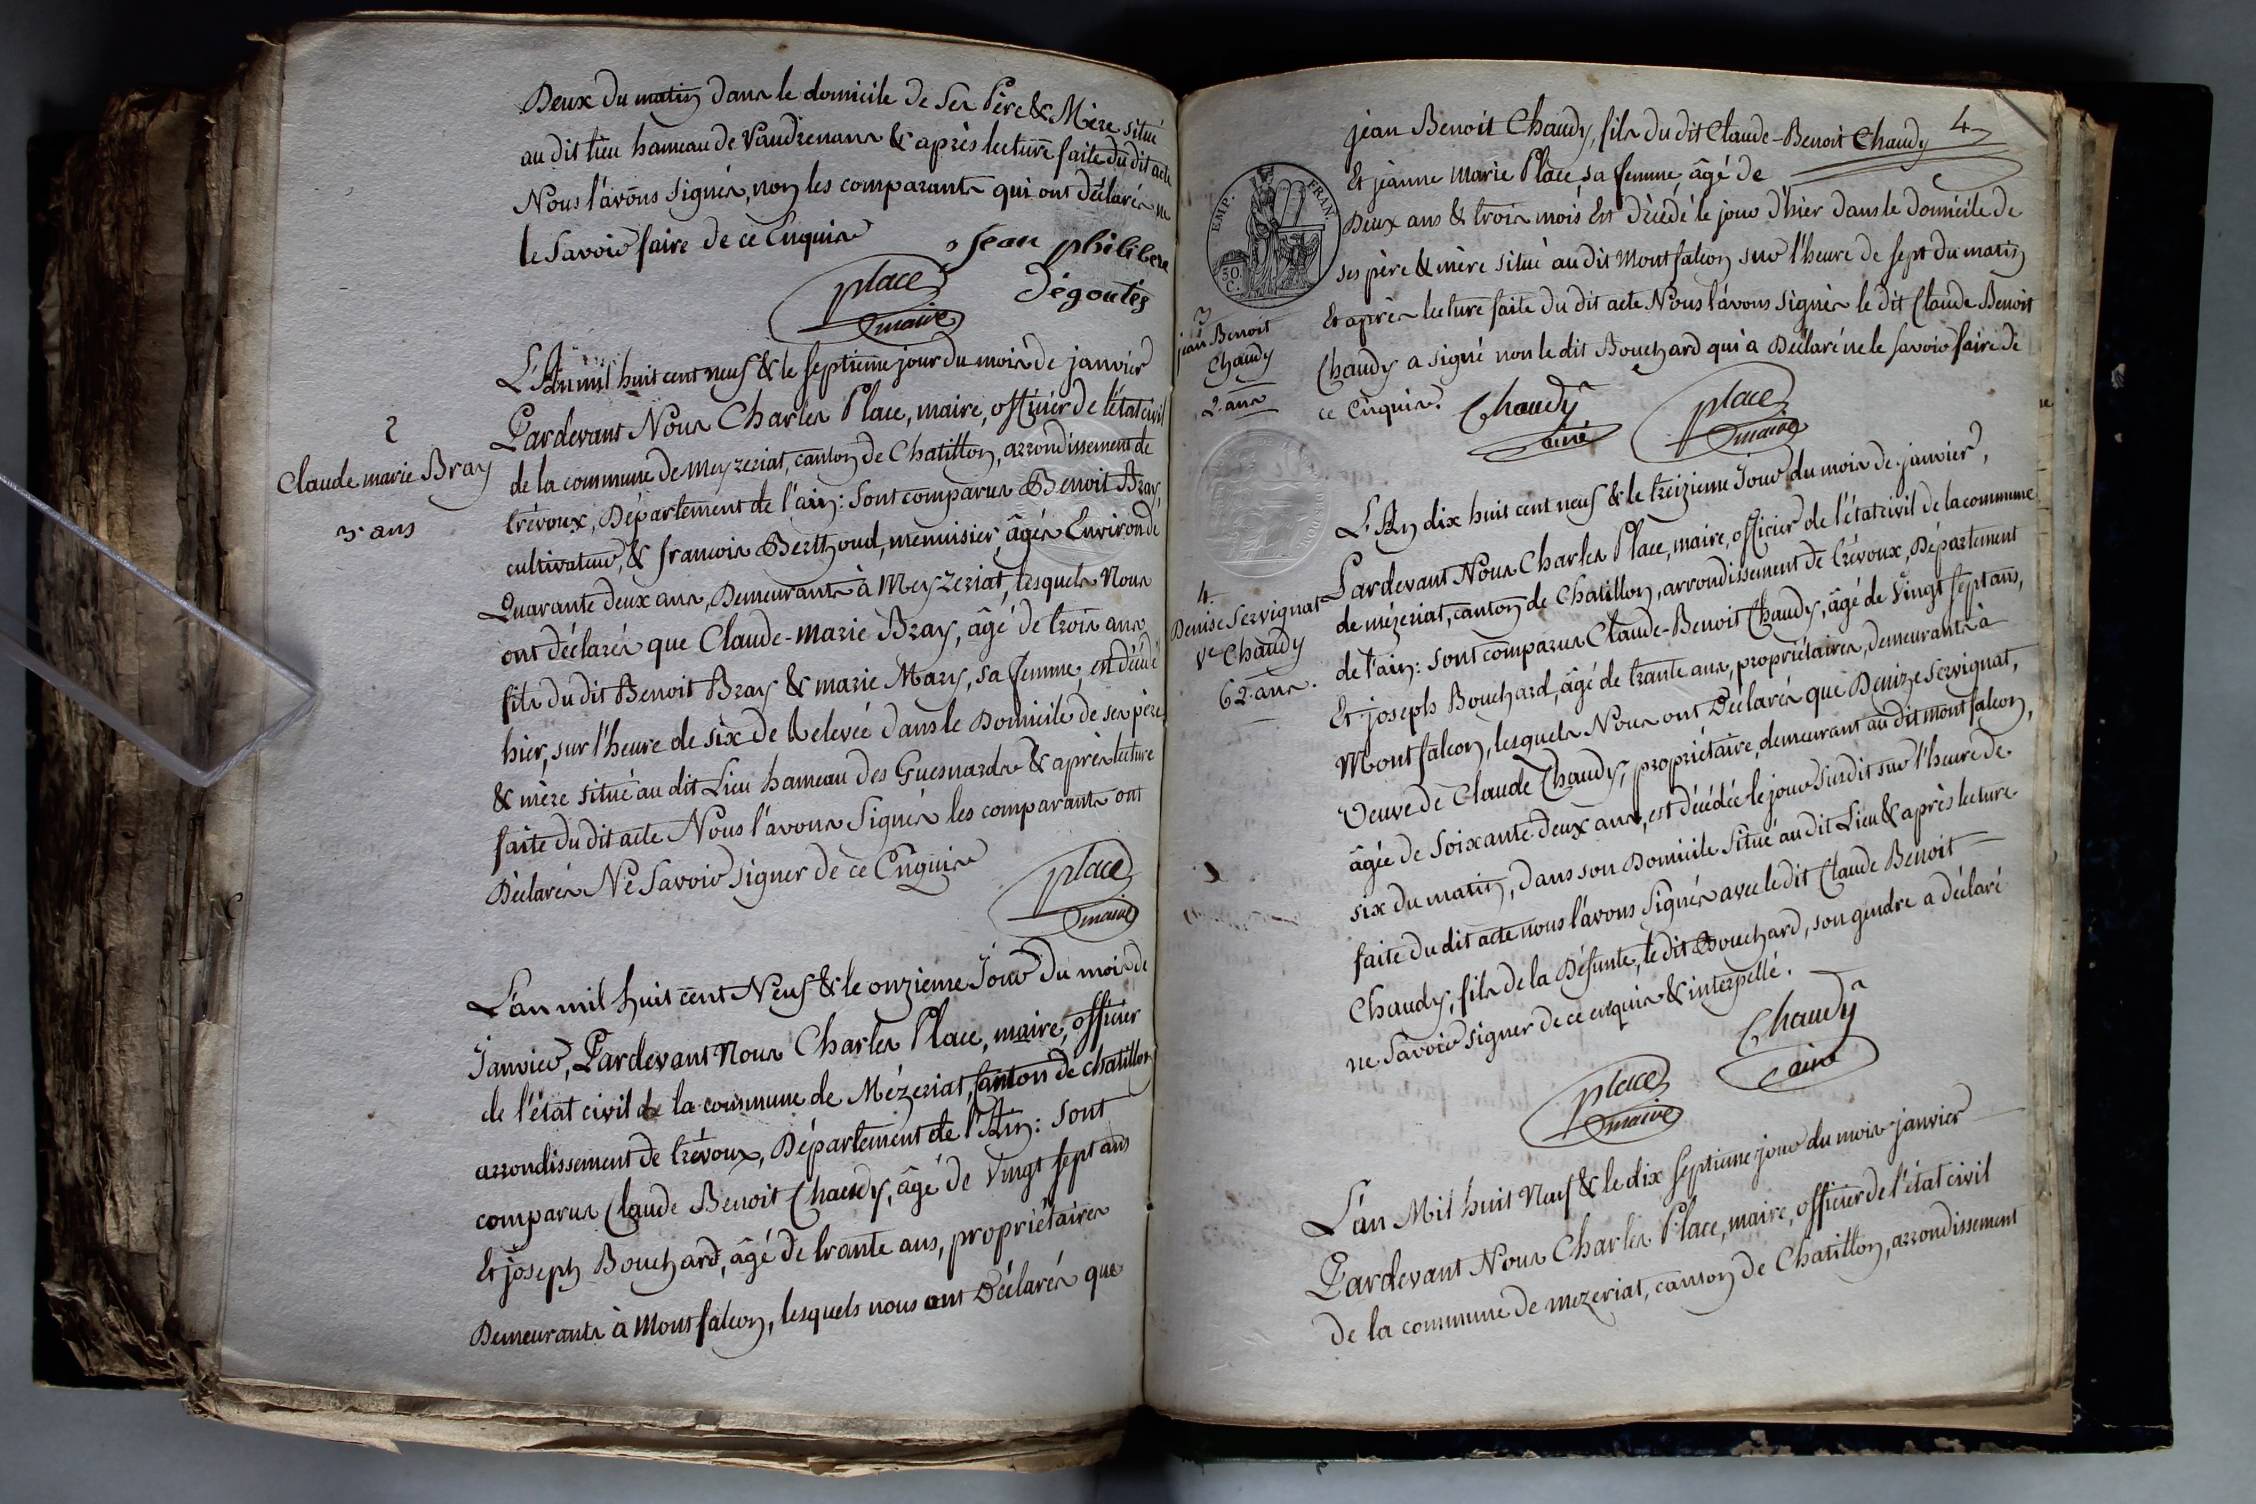 Deux du matin dans le domicile de ses Père & Mère situé
au dit lieu hameau de Vaudrenans & après lecture faite du dit acte
Nous l'avons signés, non les comparants qui ont déclarés ne
le Savoir faire de ce Enquis
Jean philibert
Dégoutes
place
maire
2
Claude marie Bray
3 ans
L'An mil huit cent neuf & le septième jour du mois de janvier
Pardevant Nous Charles Place, maire, officier de l'état civil
de la commune de Meyzeriat, canton de Chatillon, arrondissement de
trévoux, Département de l'ain: Sont comparus Benoit Bray,
cultivateur, & francois Berthoud, menuisier, âgés Environ de
Quarante deux ans, Demeurants à Meyzeriat, lesquels Nous
ont déclarés que Claude-Marie Bray, âgé de trois ans
fils du dit Benoit Bray & marie Mary, sa femme, est décédé
hier, sur l'heure de six de Relevée dans le Domicile de ses père
& mère situé au dit Lieu hameau des Guesnards & après lecture
faite du dit acte Nous l'avons Signés les comparants ont
Déclarés Ne Savoir signer de ce Enquis
place
maire
L'an mil huit cent Neuf & le onzieme Jour du mois de
Janvier, Pardevant Nous Charles Place, maire, officier
de l'état civil de la commune de Mézeriat, canton de chatillon
arrondissement de trévoux, Département de l'Ain: Sont
comparus Claude Benoit Chaudy, âgé de Vingt sept ans
Et joseph Bouchard, âgé de trante ans, propriétaires
Demeurants à Montfalcon, lesquels nous ont Déclarés que
4
jean Benoit Chaudy, fils du dit Claude-Benoit Chaudy
Et jeanne Marie Place, sa femme, âgé de
Deux ans & trois mois Est Décédé le jour d'hier dans le domicile de
ses père & mère situé au dit Montfalcon sur l'heure de sept du matin
Et après lecture faite du dit acte Nous l'avons signés le dit Claude Benoit
Chaudy a signé non le dit Bouchard qui a Déclaré ne le savoir faire de
ce Enquis.
EMP. FRAN.
50
C.
3
jean Benoit
Chaudy
2 ans
Chaudy
ainé
place
maire
4.
Denise Servignat
Ve Chaudy
62 ans.
L'An dix huit cent neuf & le treizieme Jour du mois de janvier,
Pardevant Nous Charles Place, maire, officier de l'état civil de la commune
de mézeriat, canton de Chatillon, arrondissement de trévoux, Département
de l'ain: sont comparus Claude-Benoit Chaudy, âgé de Vingt sept ans,
Et joseph Bouchard, âgé de trante ans, propriétaires, demeurants à
Montfalcon, lesquels Nous ont Déclarés que Denize Servignat,
Veuve de Claude Chaudy, propriétaire, demeurant au dit montfalcon,
âgée de Soixante-deux ans, est décédée le jour susdit sur l'heure de
six du matin, dans son Domicile Situé au dit Lieu & après lecture
faite du dit acte nous l'avons Signés avec le dit Claude Benoit
Chaudy, fils de la Défunte, le dit Bouchard, son gendre a déclaré
ne Savoir signer de ce enquis & interpellé.
Chaudy
ainé
place
maire
L'an Mil huit Neuf & le dix septieme jour du mois janvier
Pardevant Nous Charles Place, maire, officier de l'état civil
de la commune de mezeriat, canton de Chatillon, arrondissement